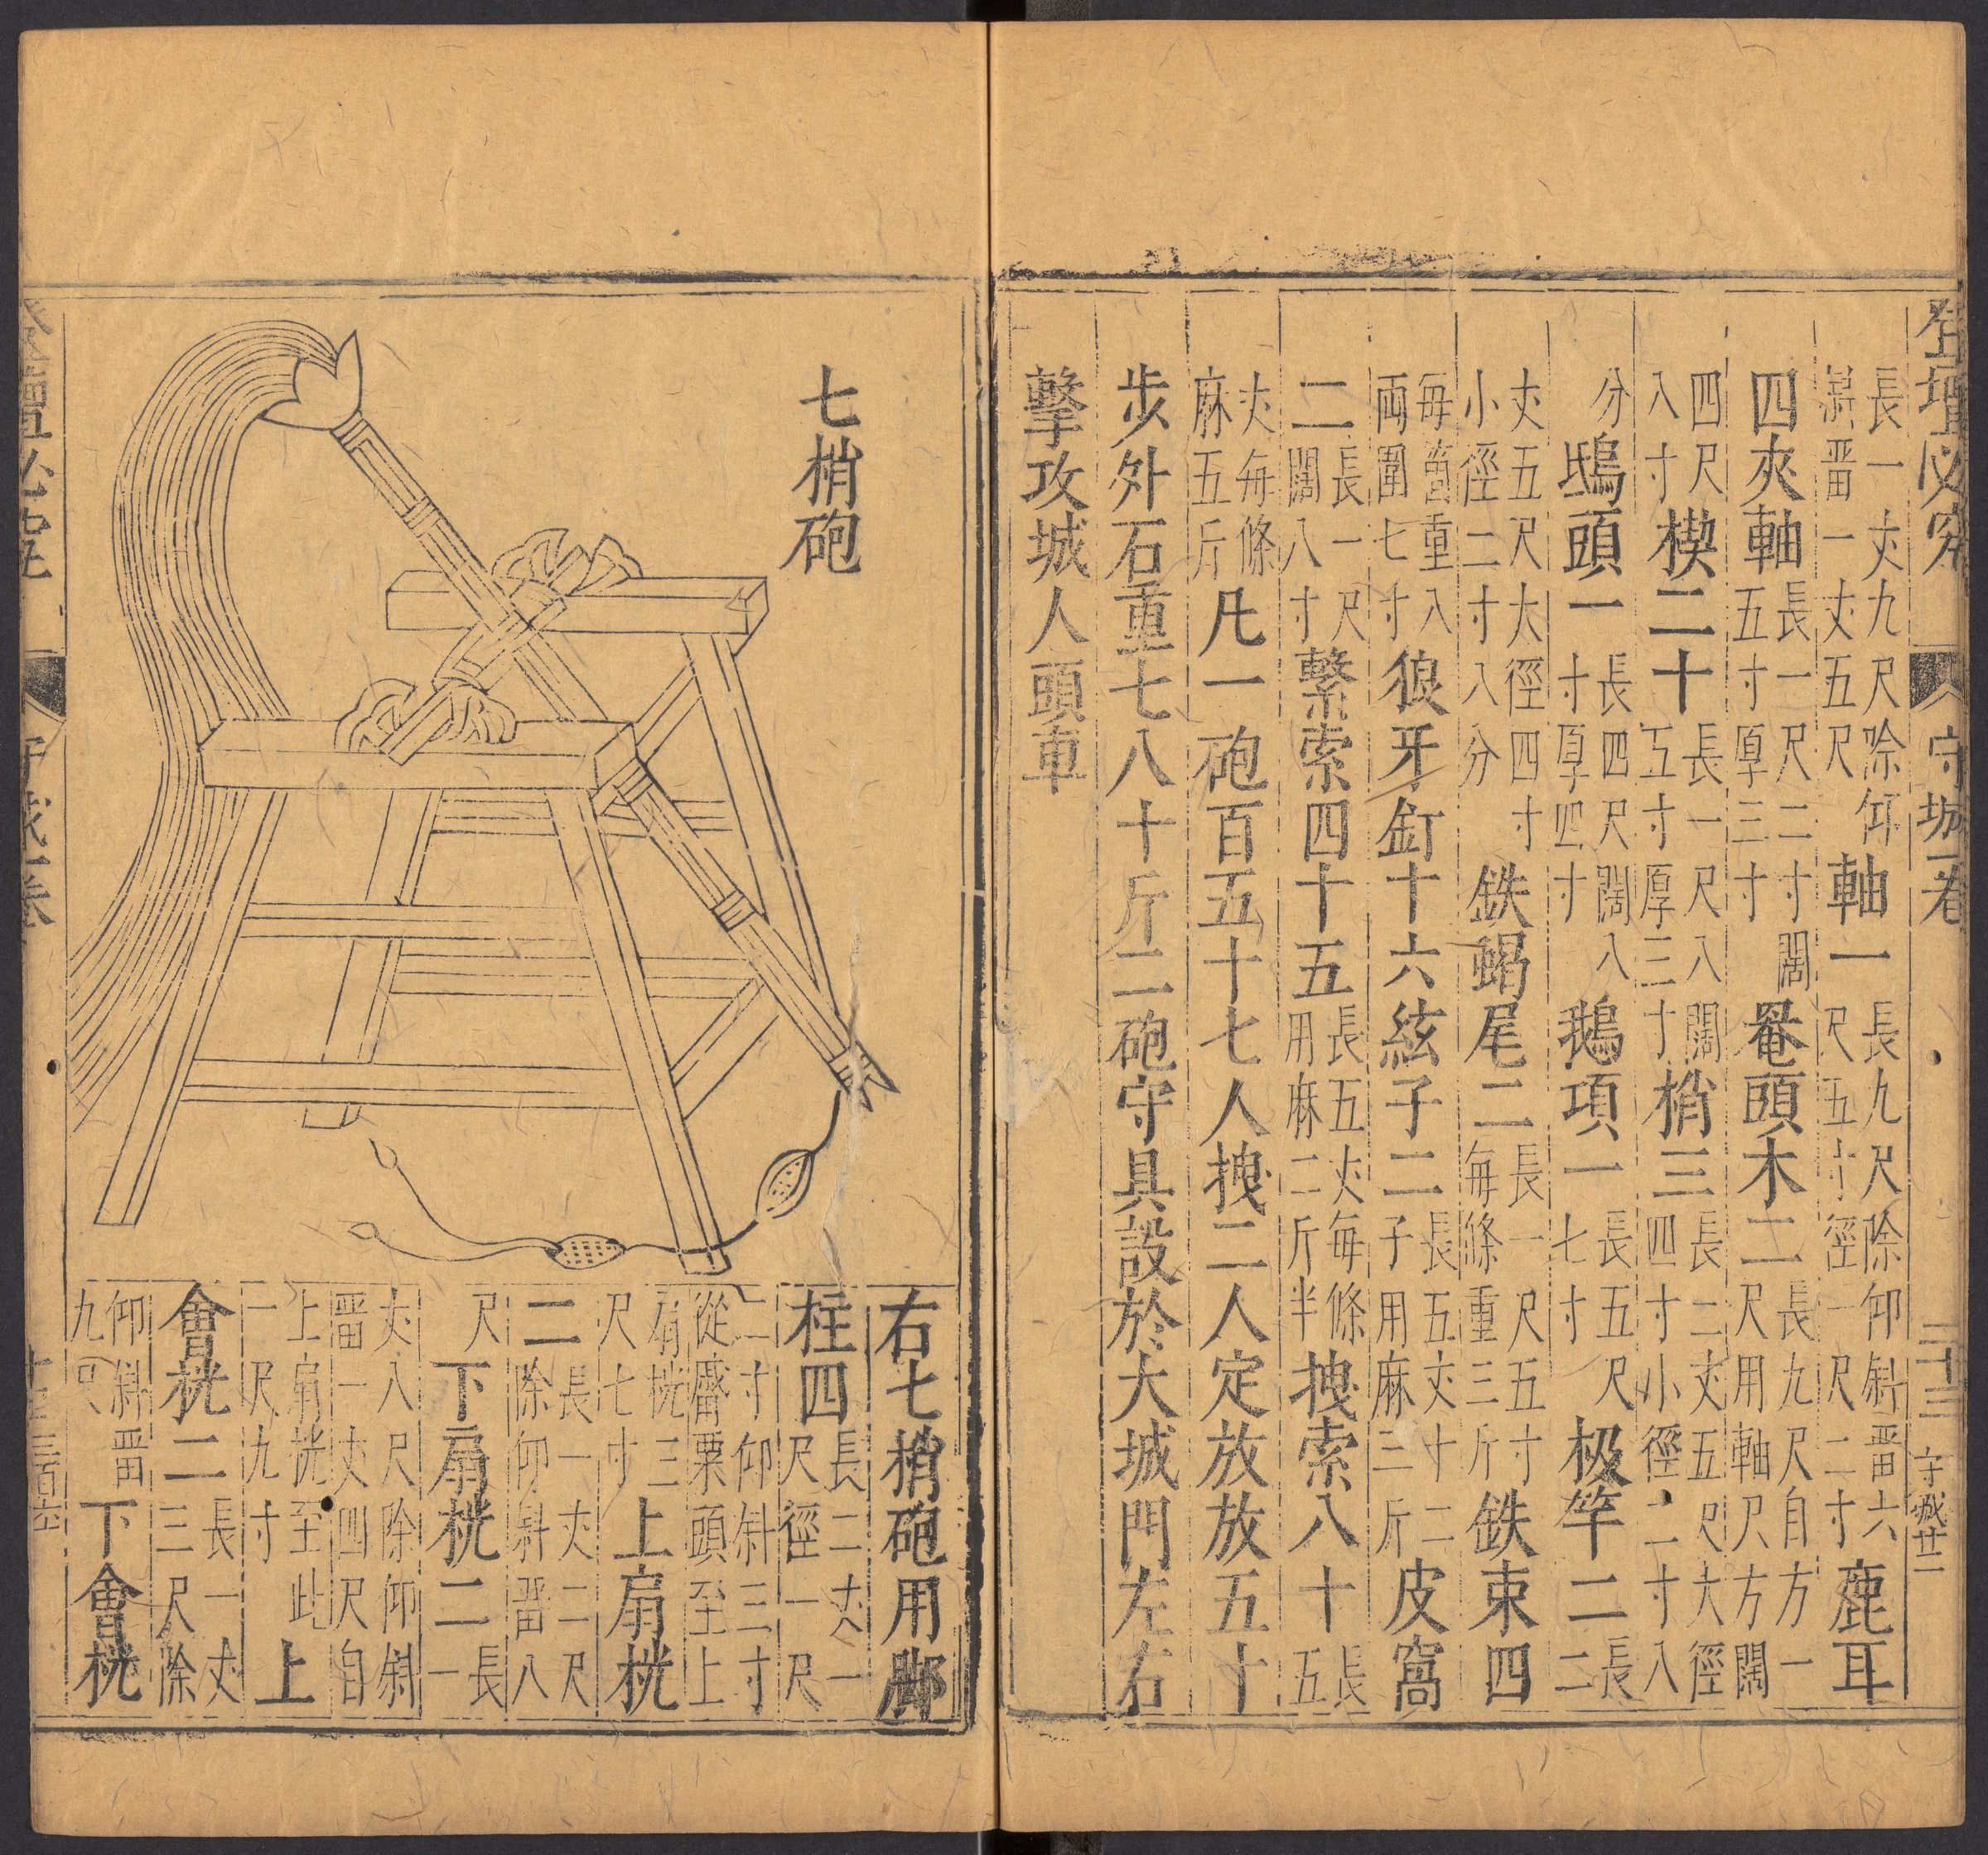 登壇必究 守城一卷 二十三 守城廿二
長一丈九尺除仰斜罾一丈五尺軸一長九尺除仰斜罾六尺五寸徑一尺二寸鹿耳
四夾軸長一尺二寸闊五寸厚三寸罨頭木二長九尺自方一尺用軸尺方闊
四尺八寸楔二十長一尺八闊五寸厚三寸梢三長二丈五尺大徑四寸小徑二寸八
分鴟頭一長四尺闊八寸厚四寸鵝項一長五尺七寸极竿二長二
丈五尺大徑四寸小徑二寸八分鉄蝎尾二長一尺五寸每條重三斤鉄束四
每箇重八兩圍七寸狼牙釘十六絃子二長五丈寸二子用麻三斤皮窩
二長一尺闊八寸繫索四十五長五丈每條用麻二斤半拽索八十長五
丈每條麻五斤凡一砲百五十七人拽二人定放放五十
步外石重七八十斤二砲守具設於大城門左右
擊攻城人頭車
七梢砲
右七梢砲用脚
柱四長二丈一尺徑一尺
二寸仰斜三寸從厴栗頭至上
扇桄三尺七寸上扇桄
二長一丈二尺除仰斜罾八
尺下扇桄二長一
丈八尺除仰斜罾一丈四尺自
上扇桄至此一尺九寸上
會桄二長一丈三尺除
仰斜罾九尺下會桄